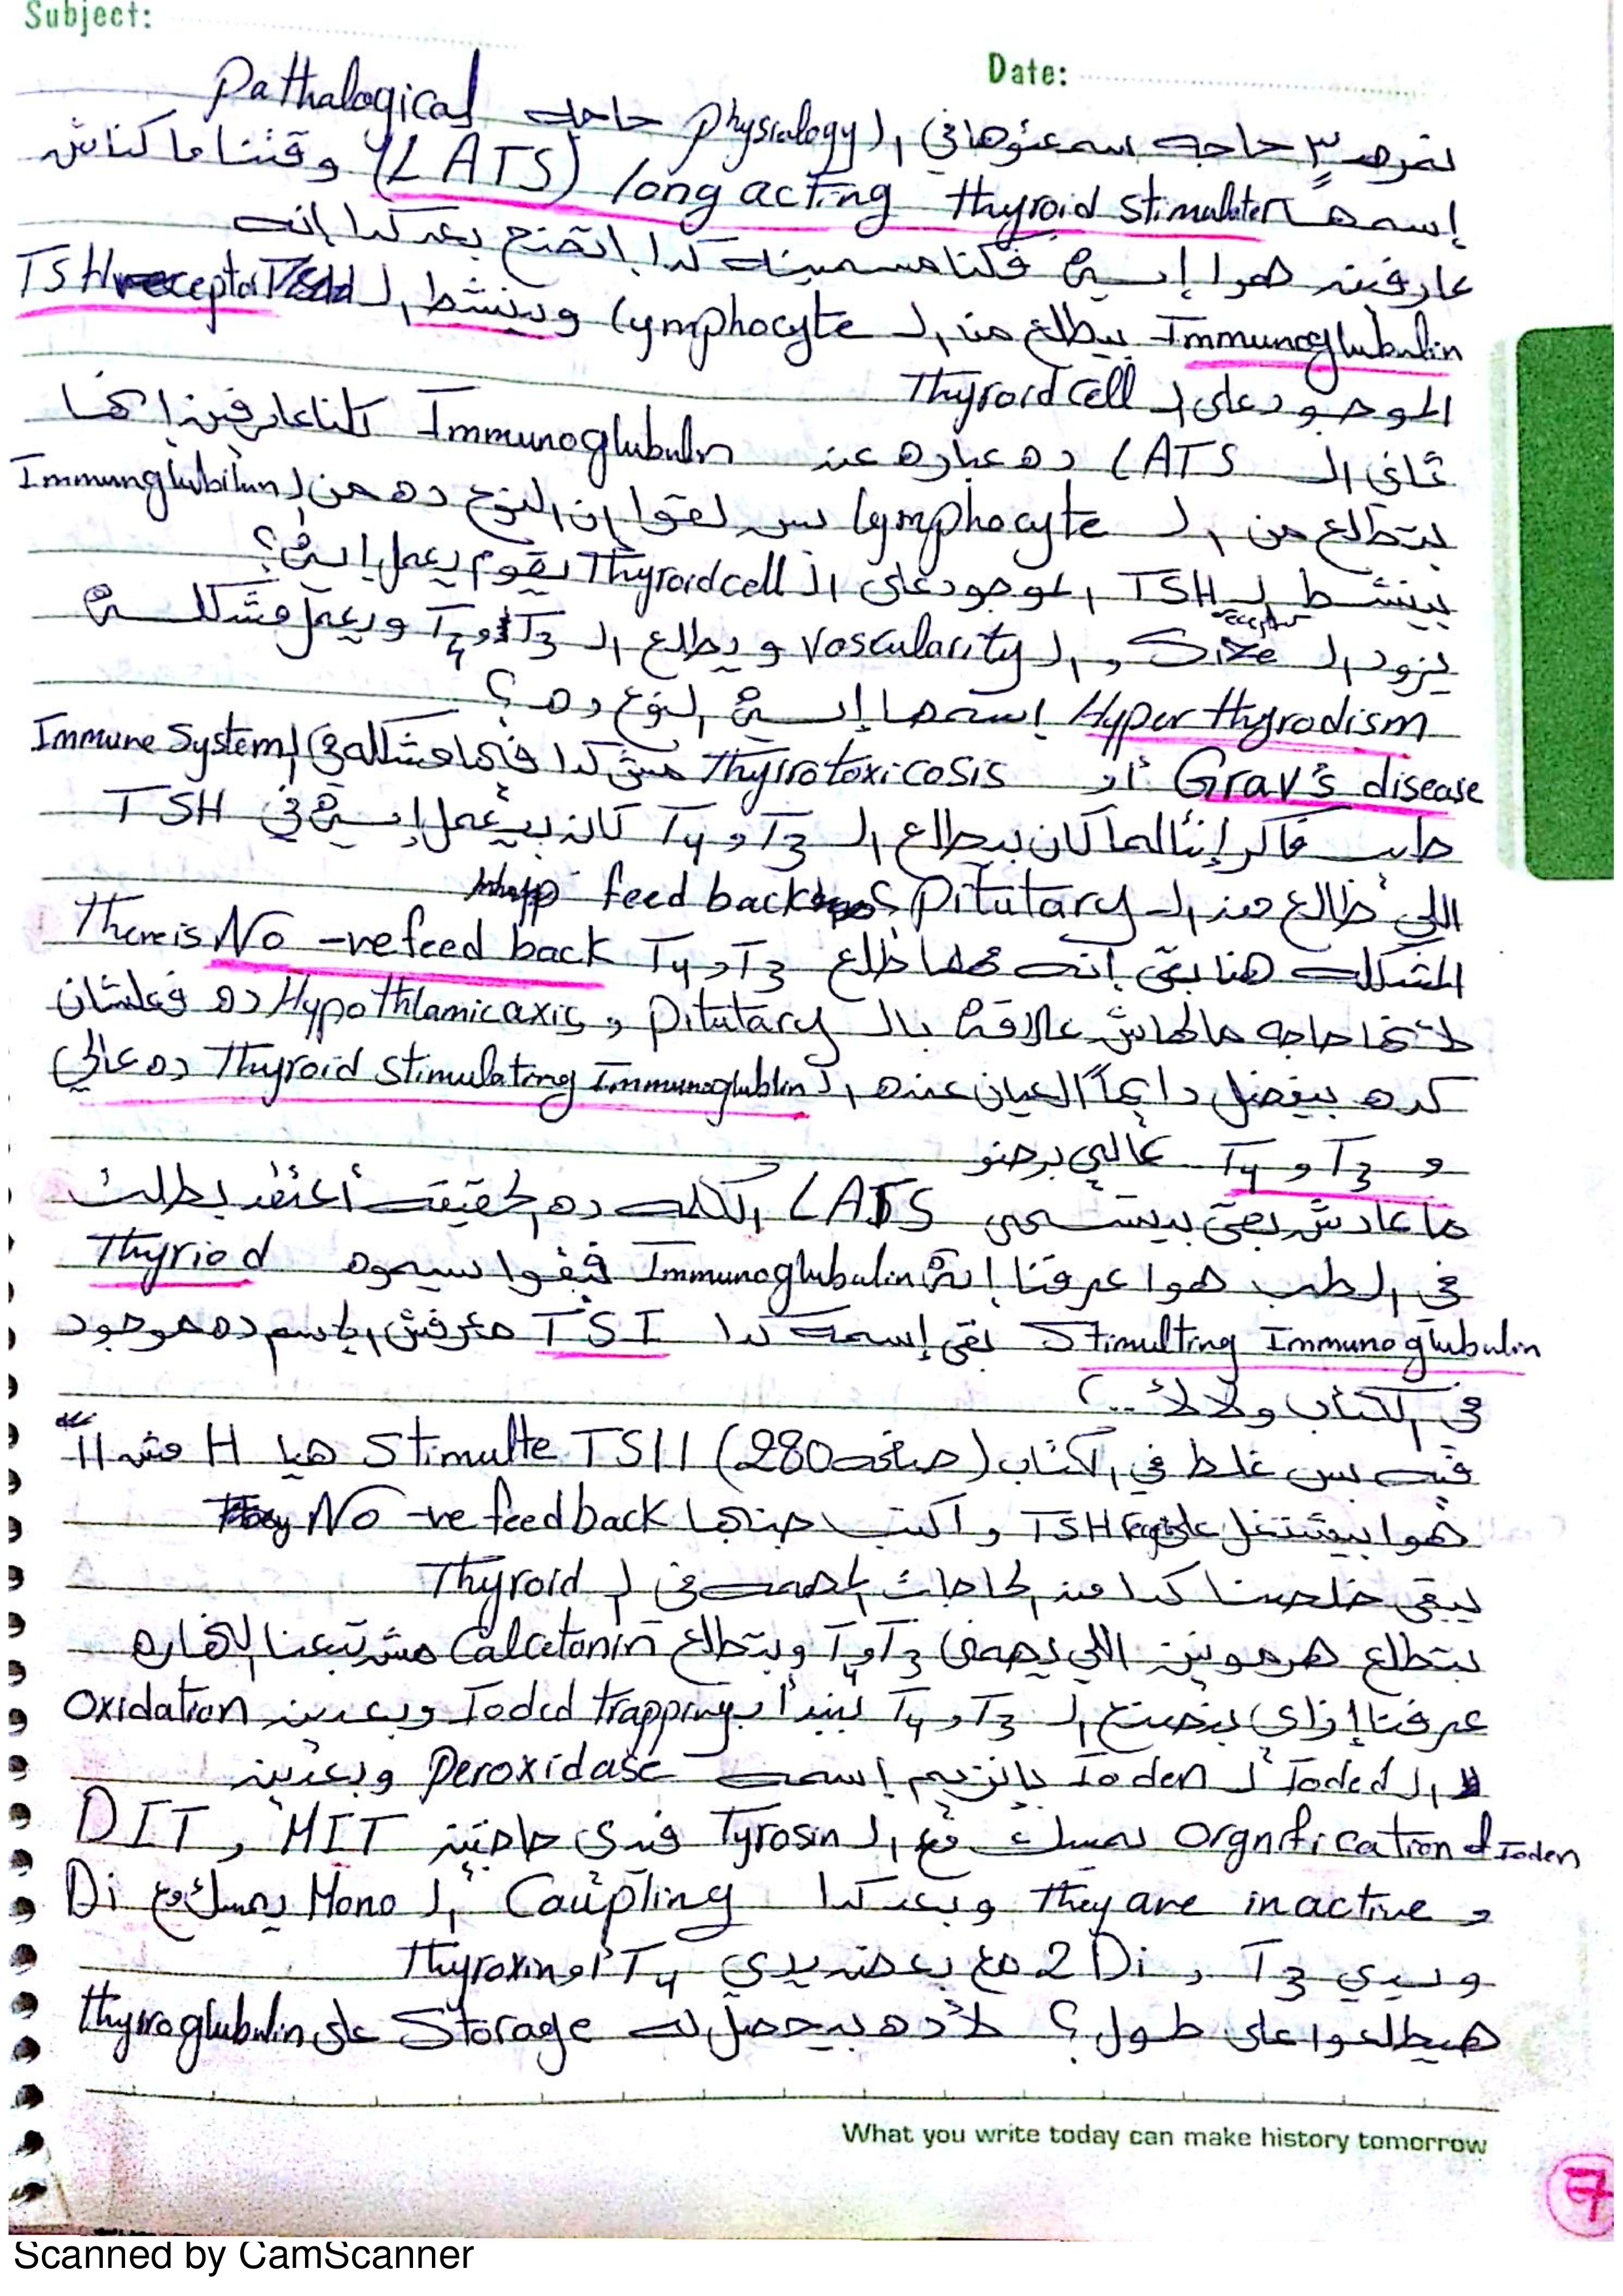 Subject:
Date:
نمره ٣ حاجه سمعتوها في ال physiology حاجه Pathalogical
إسمها long acting thyroid stimulater (LATS) وقتنا ما كناش
عارفين هوا إيه فكنا مسمينه كدا، اتضح بعد كدا إنه
Immunoglubulin بيطلع من ال Lymphocyte وبينشط ال TSH receptor
الموجود على ال Thyroid cell
تاني ال LATS ده عباره عن Immunoglubulin كلنا عارفين إنها
بتطلع من ال Lymphocyte بس لقوا إن النوع ده من ال Immunglubilun
بينشط ل TSH receptor الموجود على ال Thyroid cell يقوم يعمل إيه؟
يزود ال Size و ال vascularity و يطلع ال T3 و T4 ويعمل مشكله
Hyper thyrodism إسمها إيه النوع ده؟
Grav's disease أو Thyrotoxicosis مش كدا فيها مشكله في ال Immune System
طب فاكر إنتا لما كان بيطلع ال T3 و T4 كان بيعمل إيه في TSH
اللي طالع من ال Pitutary؟ feed back
المشكله هنا بقى إنه مهما طلع T3 و T4 There is No -ve feed back
لأنها حاجه مالهاش علاقة بال Pitutary و Hypothlamic axis ده فعلشان
كده بيفضل دايماً العيان عنده ال Thyroid stimulating Immunoglublin ده عالي
و T3 و T4 عالي برضو
ما عادش بقى بيتسمى LATS الكلمه ده الحقيقه أعتقد بطلت
في الطب هوا عرفنا إنه Immunoglubulin فبقوا يسموه Thyriod
Stimulting Immunoglubulin بقى إسمه كدا TSI معرفش الإسم ده موجود
في الكتاب ولا لأ ..؟
فيه بس غلط في الكتاب (صفحه 280) Stimulte TSH هيا H مش II
هوا بيشتغل على TSH Receptor و اكتب جنبها No -ve feed back
يبقى خلصنا كدا من الحاجات المهمه في ال Thyroid
بتطلع هرمونين اللي يهمني T3 و T4 وبتطلع Calcetonin مش تبعنا النهارده
عرفنا إزاي بنصنع ال T3 و T4 نبدأ ب Ioded trapping وبعدين oxidation
ال Ioded ل Ioden بإنزيم إسمه peroxidase وبعدين
Orgnification of Ioden نمسك مع ال Tyrosin فيدي حاجتين DIT, MIT
و They are inactive وبعد كدا Coupling ال Mono يمسك مع Di
ويدي T3 و 2 Di مع بعض يدي T4 أو Thyroxin
هيطلعوا على طول؟ لأ ده بيحصل له Storage على thyroglubulin
What you write today can make history tomorrow
7
Scanned by CamScanner